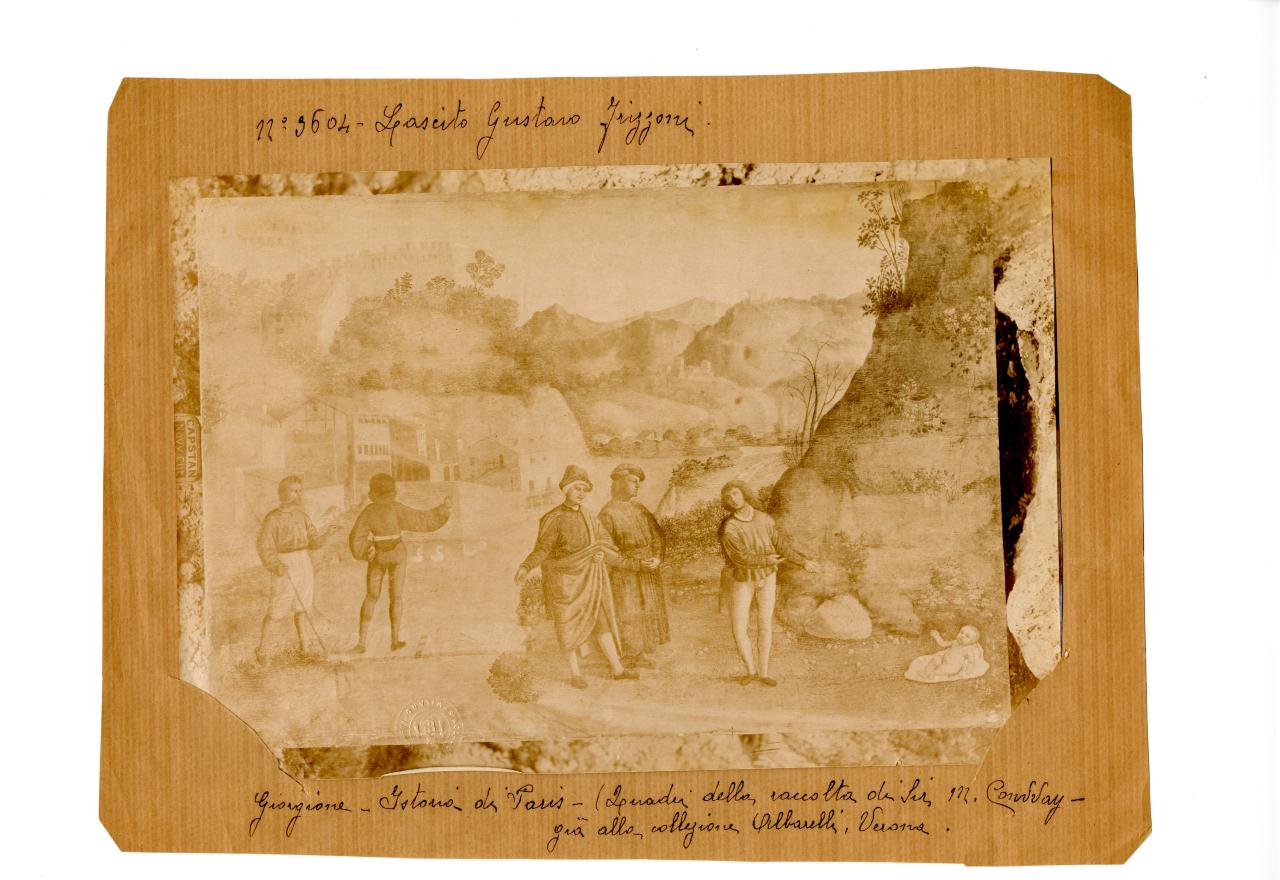 Nº 3604 - Lascito Gustavo Frizzoni.
CAPSTAN
NAVY CUT
Giorgione - Istoria di Paris - (Quadri della raccolta di Sir M. Conway -
già alla collezione Albarelli, Verona.